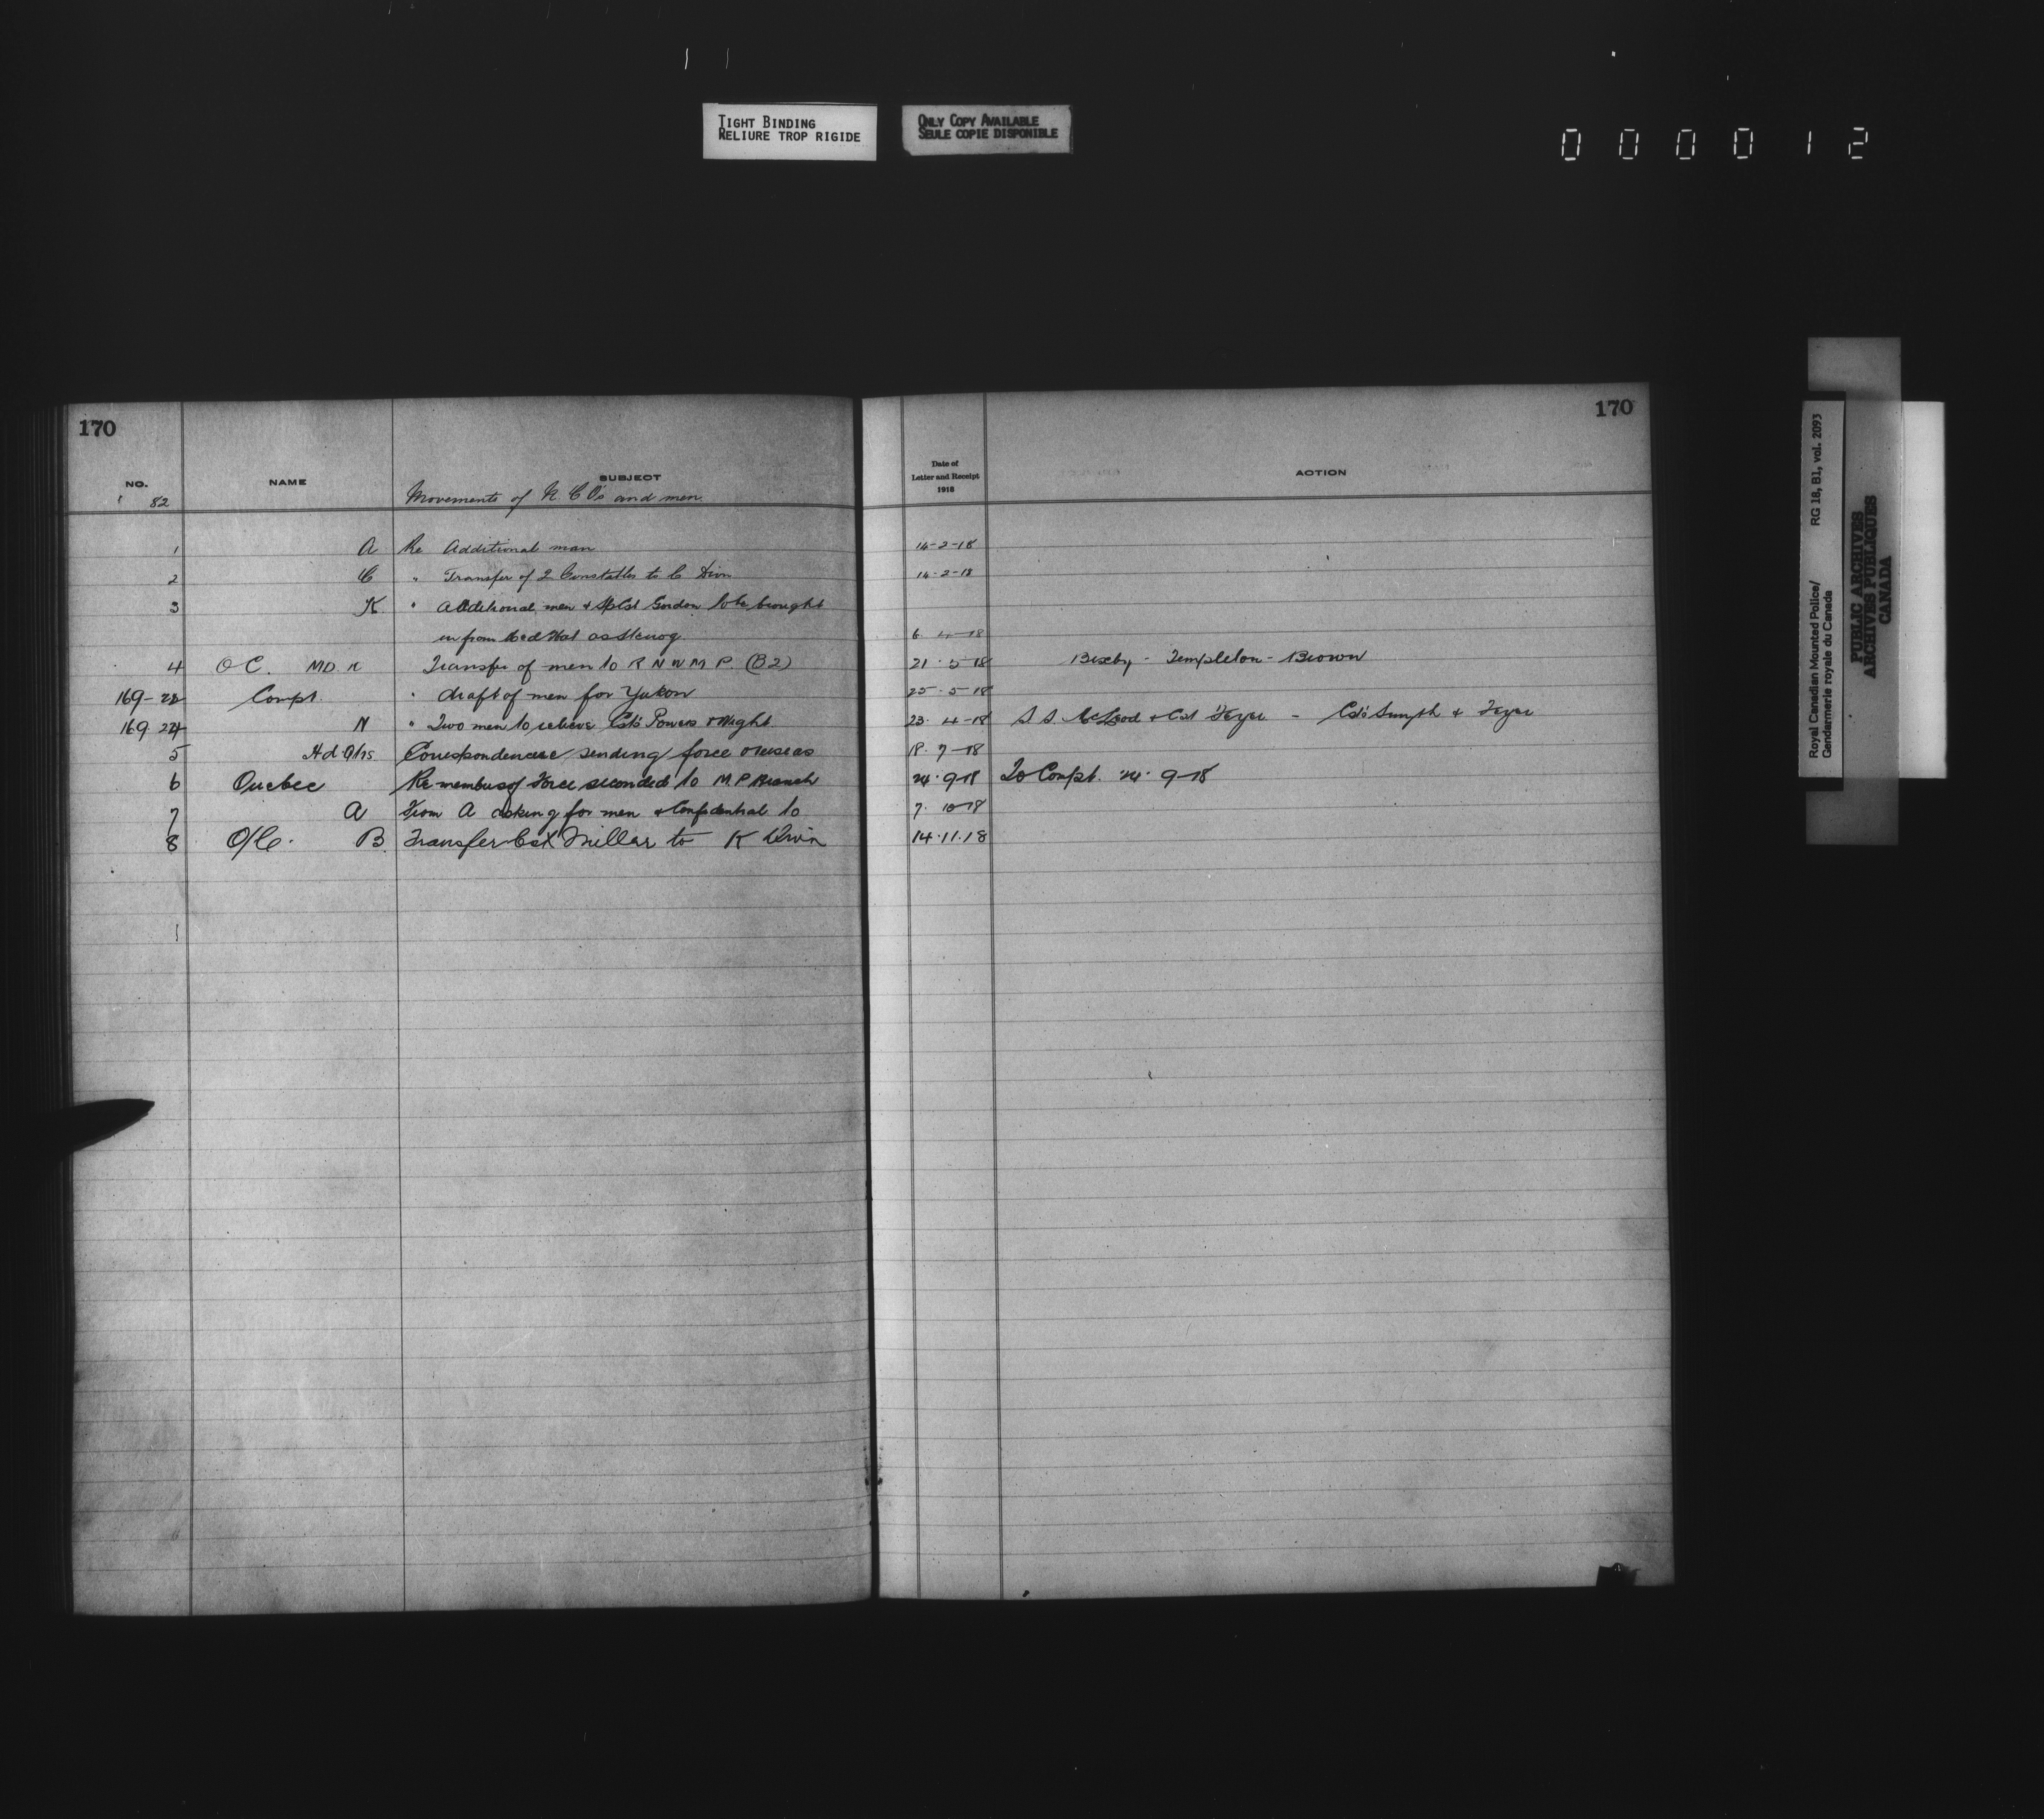 TIGHT BINDING
RELIURE TROP RIGIDE
ONLY COPY AVAILABLE
SEULE COPIE DISPONIBLE
0 0 0 0 1 2
170
NO. NAME SUBJECT
82 Movements of N C O's and men
1 A Re Additional man
2 C " Transfer of 2 Constables to C Divn
3 K " Additional men & Sp Cst Gordon to be brought
in from Med Hat as Stenog
4 OC. MD. Transfer of men to R N W M P. (B2)
169-28 Compt. " draft of men for Yukon
169. 24 N " Two men to relieve Csts Powers & Wight
5 Hd Qrs Correspondence re sending force overseas
6 Quebec Re members of Force seconded to M P Branch
7 A From A asking for men & Confidential to
8 O/C. B. Transfer Cst Millar to K Divn
170
Date of
Letter and Receipt
1918
ACTION
14-2-18
14-2-18
6 4-18
21. 5 18 Bixby - Templeton - Brown
25. 5 18
23. 4-18 S. S. McLeod & Cst - Csts Smyth &
18. 7-18
24. 9-18 To Compt. 24. 9-18
7. 10-18
14.11.18
Royal Canadian Mounted Police/ RG 18, B1, vol. 2093
Gendarmerie royale du Canada
PUBLIC ARCHIVES
ARCHIVES PUBLIQUES
CANADA